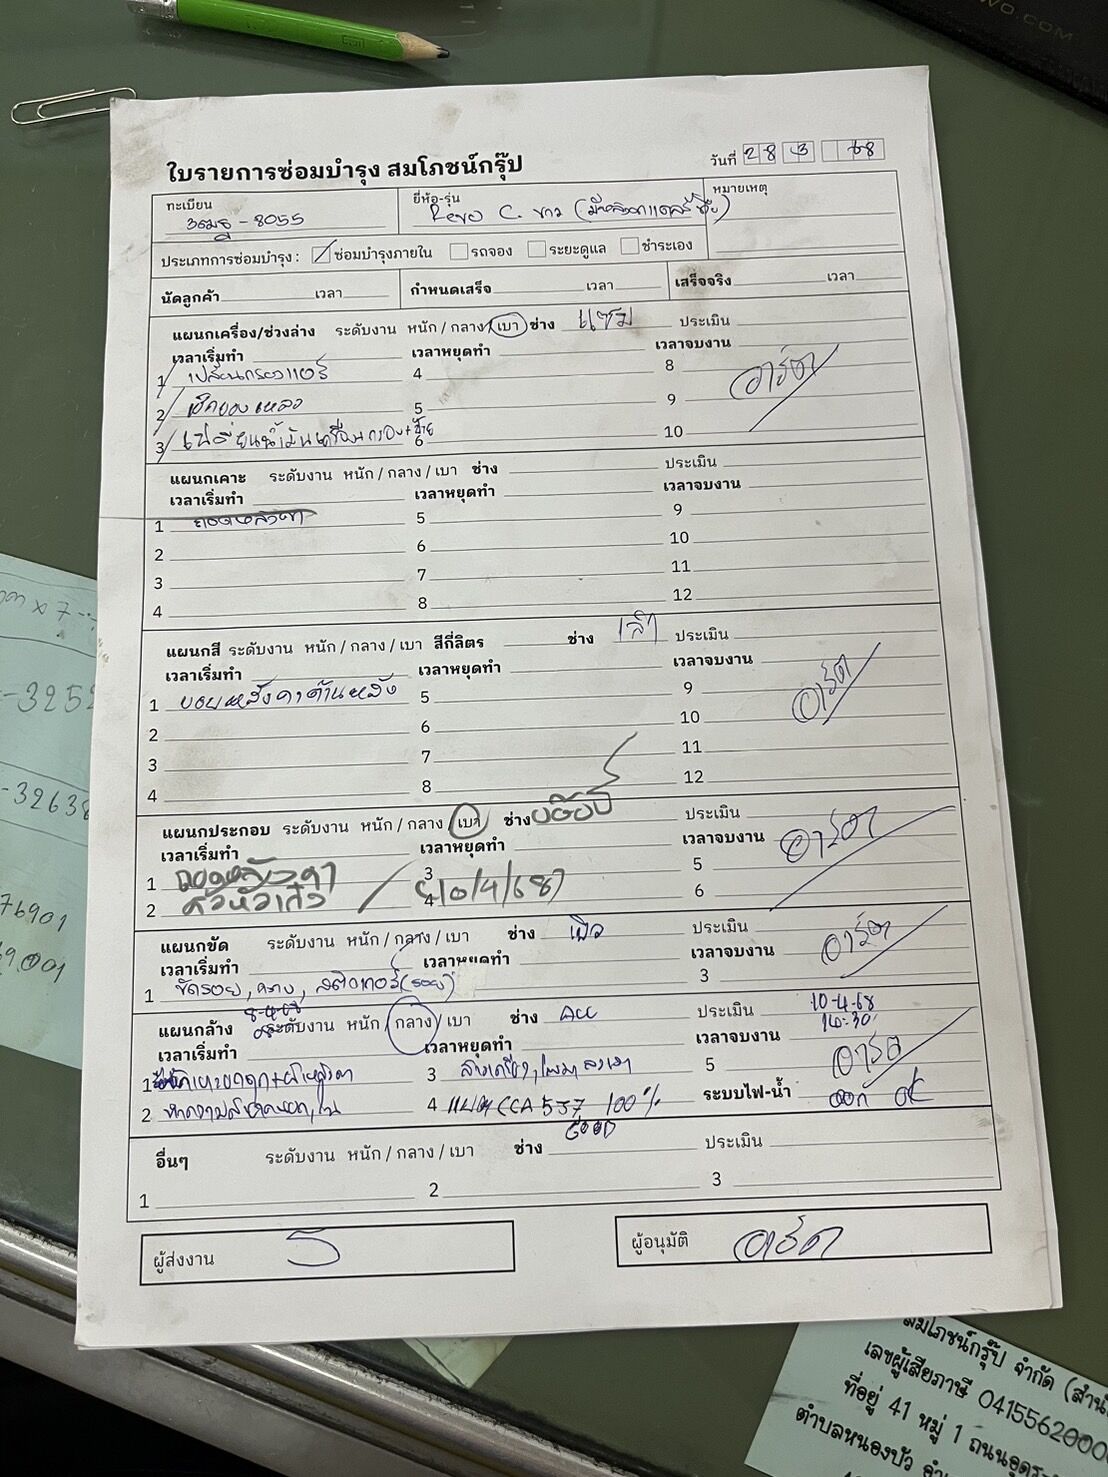 WO.COM
ใบรายการซ่อมบำรุง สมโภชน์กรุ๊ป
วันที่ 28 3 68
ทะเบียน
3ฒธ - 8055
ยี่ห้อ-รุ่น
Revo C. ขาว
หมายเหตุ
ประเภทการซ่อมบำรุง : ซ่อมบำรุงภายใน รถจอง ระยะดูแล ชำระเอง
นัดลูกค้า เวลา กำหนดเสร็จ เวลา เสร็จจริง เวลา
แผนกเครื่อง/ช่วงล่าง ระดับงาน หนัก / กลาง / เบา ช่าง แซม ประเมิน
เวลาเริ่มทำ เวลาหยุดทำ เวลาจบงาน
1 เปลี่ยนกรองแอร์ 4 8 อาร์ต
2 เช็คของเหลว 5 9
3 เปลี่ยนน้ำมันเครื่อง+กรอง+ 6 10
แผนกเคาะ ระดับงาน หนัก / กลาง / เบา ช่าง ประเมิน
เวลาเริ่มทำ เวลาหยุดทำ เวลาจบงาน
1 ถอดหลังคา 5 9
2 6 10
3 7 11
4 8 12
แผนกสี ระดับงาน หนัก / กลาง / เบา สีกี่ลิตร ช่าง ประเมิน
เวลาเริ่มทำ เวลาหยุดทำ เวลาจบงาน
1 ขอบหลังคาด้านหลัง 5 9 อาร์ต
2 6 10
3 7 11
4 8 12
แผนกประกอบ ระดับงาน หนัก / กลาง / เบา ช่าง ประเมิน
เวลาเริ่มทำ เวลาหยุดทำ เวลาจบงาน อาร์ต
1 ถอดหลังคา 3 5
2 4 10/4/68 6
แผนกขัด ระดับงาน หนัก / กลาง / เบา ช่าง ประเมิน
เวลาเริ่มทำ เวลาหยุดทำ เวลาจบงาน อาร์ต
1 ขัดรอย, คราบ, สติกเกอร์(รอย) 3
8-4-68
แผนกล้าง ระดับงาน หนัก / กลาง / เบา ช่าง ประเมิน 10-4-68
เวลาเริ่มทำ เวลาหยุดทำ เวลาจบงาน
1 3 5 อาร์ต
2 ทำความสะอาดนอก,ใน 4 แบต CCA 557 100% GOOD ระบบไฟ-น้ำ OK
อื่นๆ ระดับงาน หนัก / กลาง / เบา ช่าง ประเมิน
1 2 3
ผู้ส่งงาน
ผู้อนุมัติ อาร์ต
-32638
76901
สมโภชน์กรุ๊ป จำกัด
เลขผู้เสียภาษี 0415562000
ที่อยู่ 41 หมู่ 1 ถนนอุดร
ตำบลหนองบัว